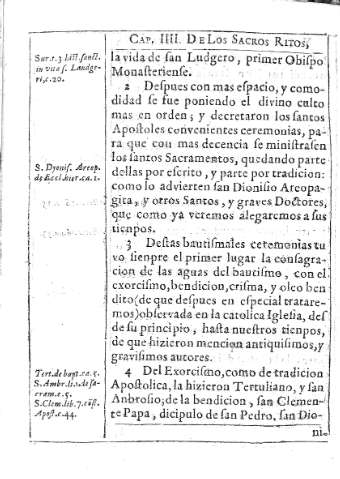 CAP. IIII. DE LOS SACROS RITOS,
Sur.t.3 hist.sanct.
in vita s. Ludge-
ri,c.20.
la vida de san Ludgero, primer Obispo
Monasteriense.
2 Despues con mas espacio, y como-
didad se fue poniendo el divino culto
mas en orden; y decretaron los santos
Apostoles convenientes ceremonias, pa
ra que con mas decencia se ministrasen
los santos Sacramentos, quedando parte
S. Dyonis. Areop.
de Eccl. hier. ca. 1.
dellas por escrito, y parte por tradicion:
como lo advierten san Dionisio Areopa-
gita, y otros Santos, y graves Doctores,
que como ya veremos alegaremos a sus
tienpos.
3 Destas bautismales ceremonias tu
vo sienpre el primer lugar la consagra-
cion de las aguas del bautismo, con el
exorcismo, bendicion, crisma, y oleo ben
dito (de que despues en especial tratare-
mos) observada en la catolica Iglesia, des
de su principio, hasta nuestros tienpos,
de que hizieron mencion antiquisimos, y
gravisimos autores.
Tert. de bapt. ca. 5.
S. Ambr. li.1. de sa-
cram. c. 5.
S. Clem. lib. 7. cõst.
Apost. c. 44.
4 Del Exorcismo, como de tradicion
Apostolica, la hizieron Tertuliano, y san
Anbrosio; de la bendicion, san Clemen-
te Papa, dicipulo de san Pedro, san Dio-
ni-